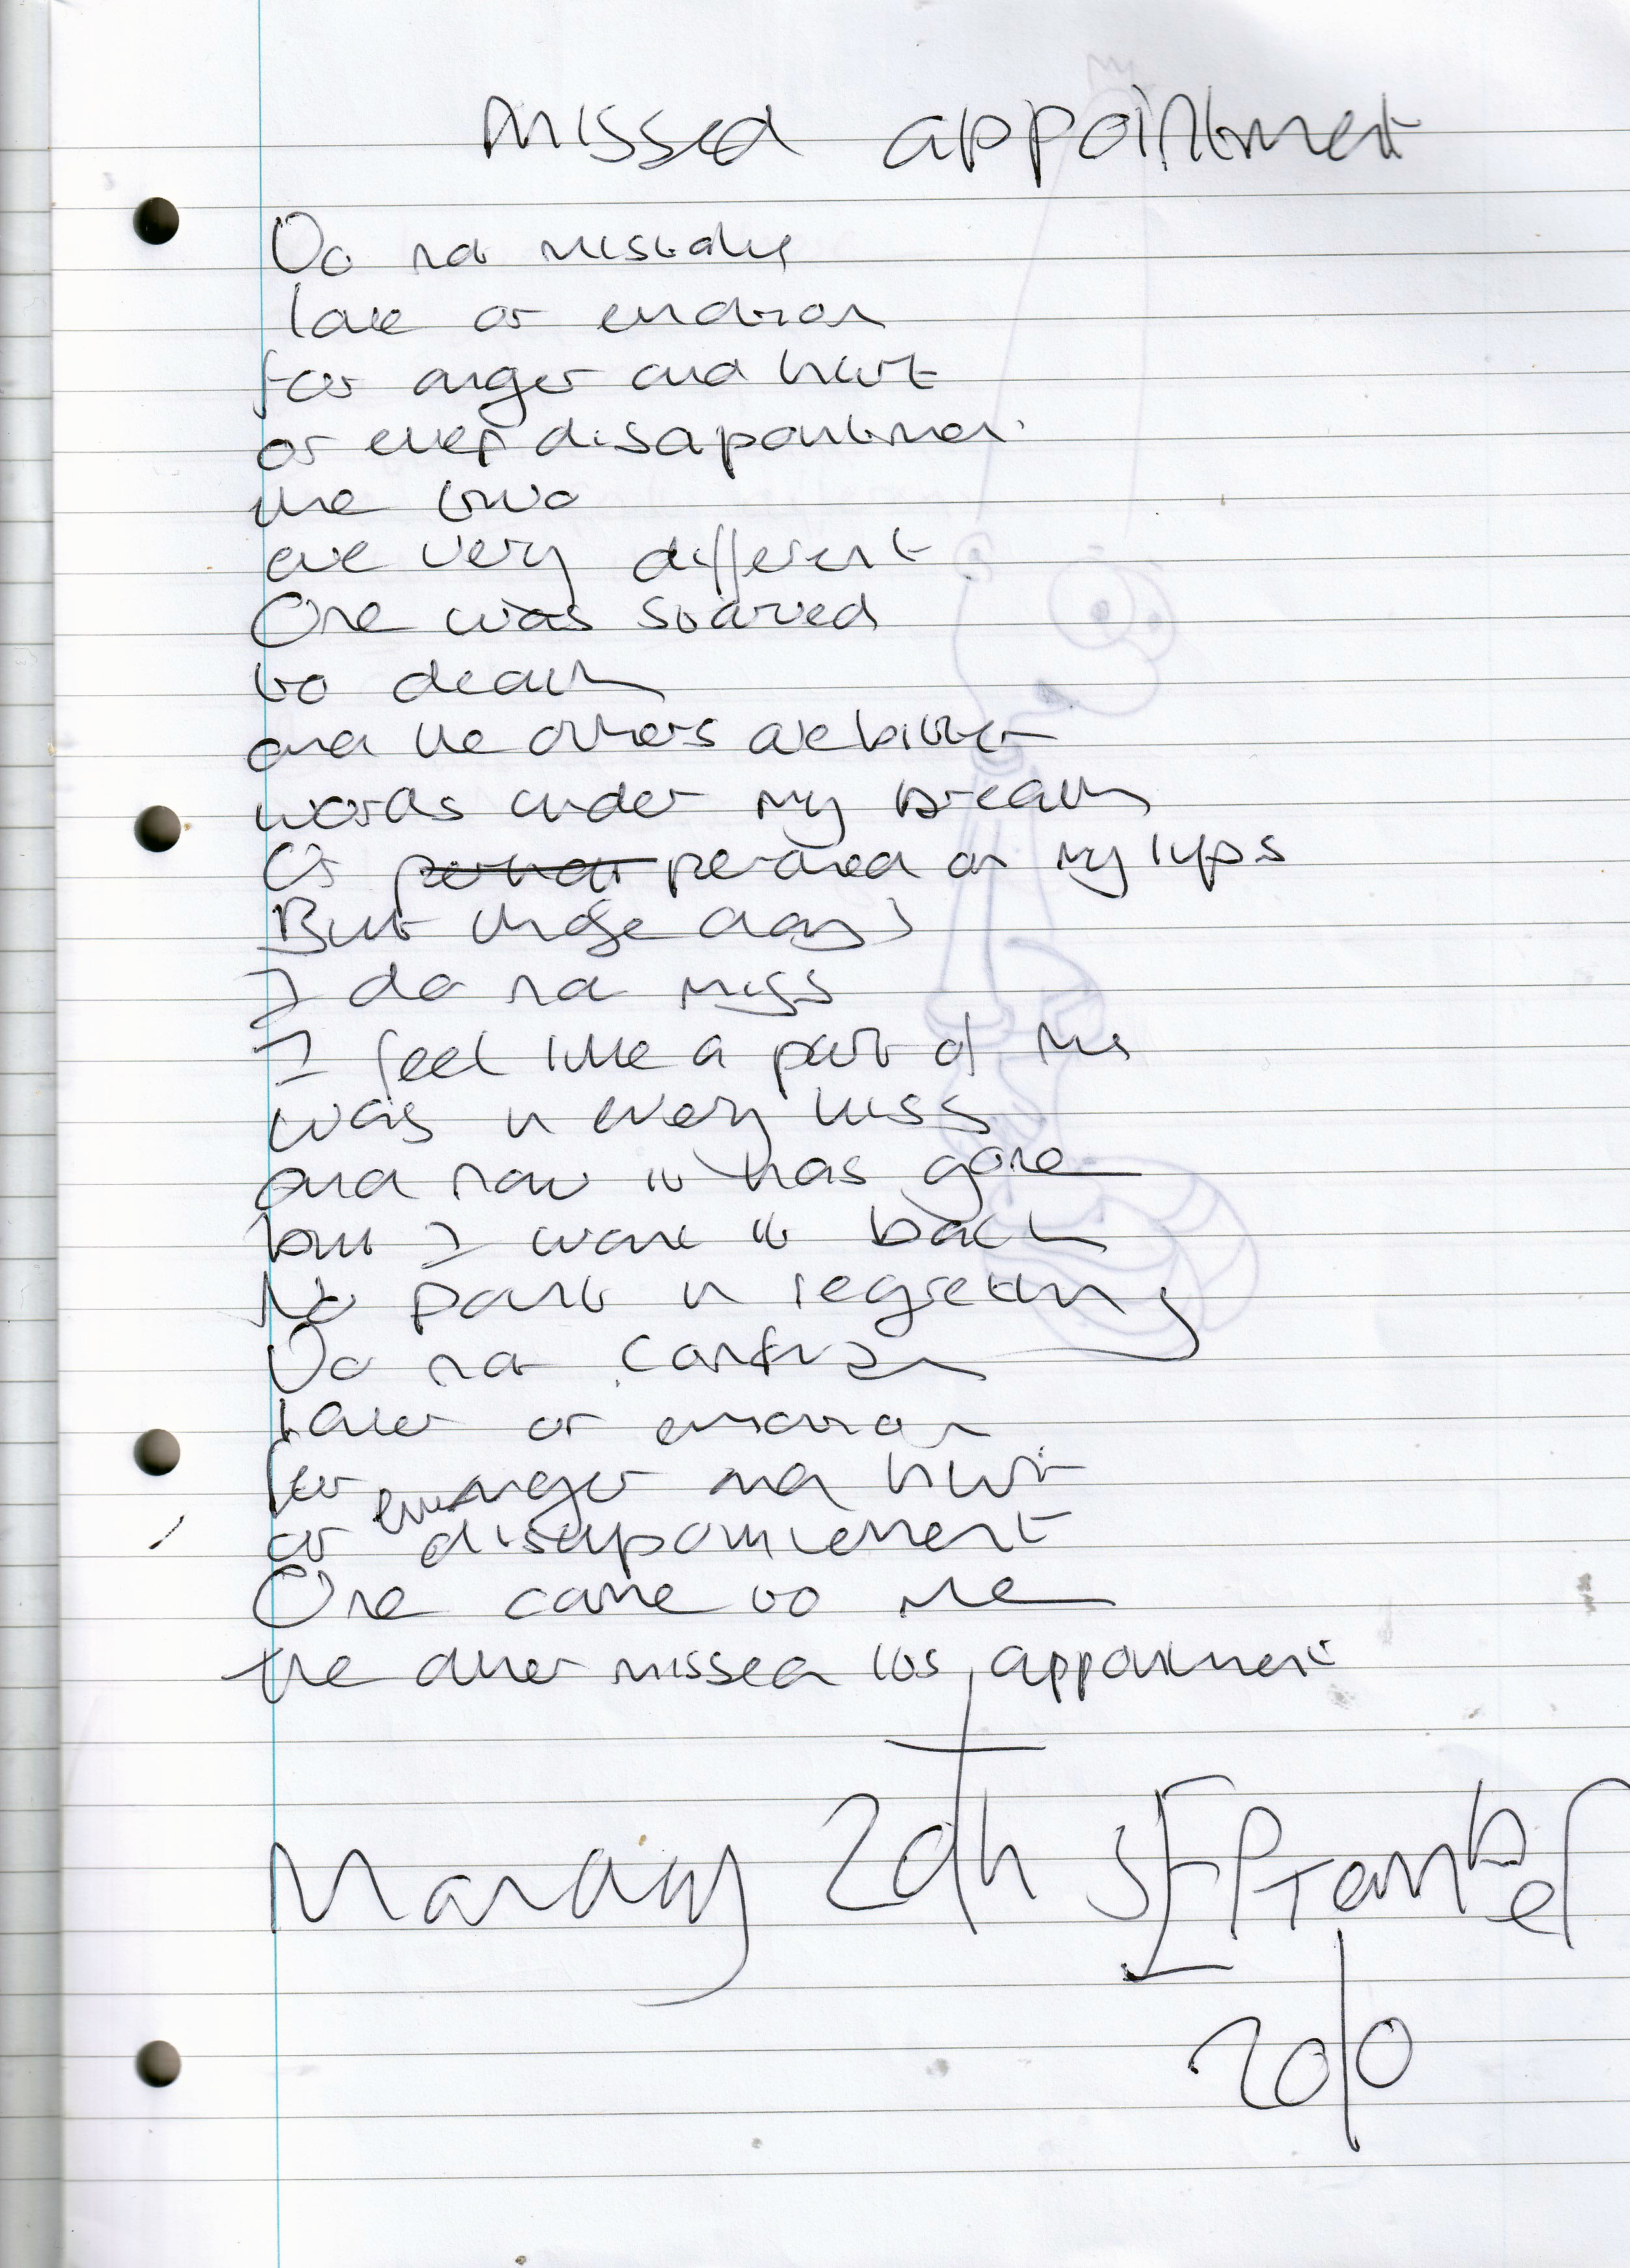 missed appointment
Do not mistake
love or emotion
for anger and hurt
or even disapointmen
the two
are very different
One was starved
to death
and the others are bitter
words under my breath
Or on my lips
But those days
I do not miss
I feel like a part of me
was in every kiss
and now it has gone
but I want it back
No point in regretting
Do not confuse
love or emotion
for anger and hurt
or even disapointement
One came to me
the other missed its appointment
Monday 20th SEPTembeR
2010